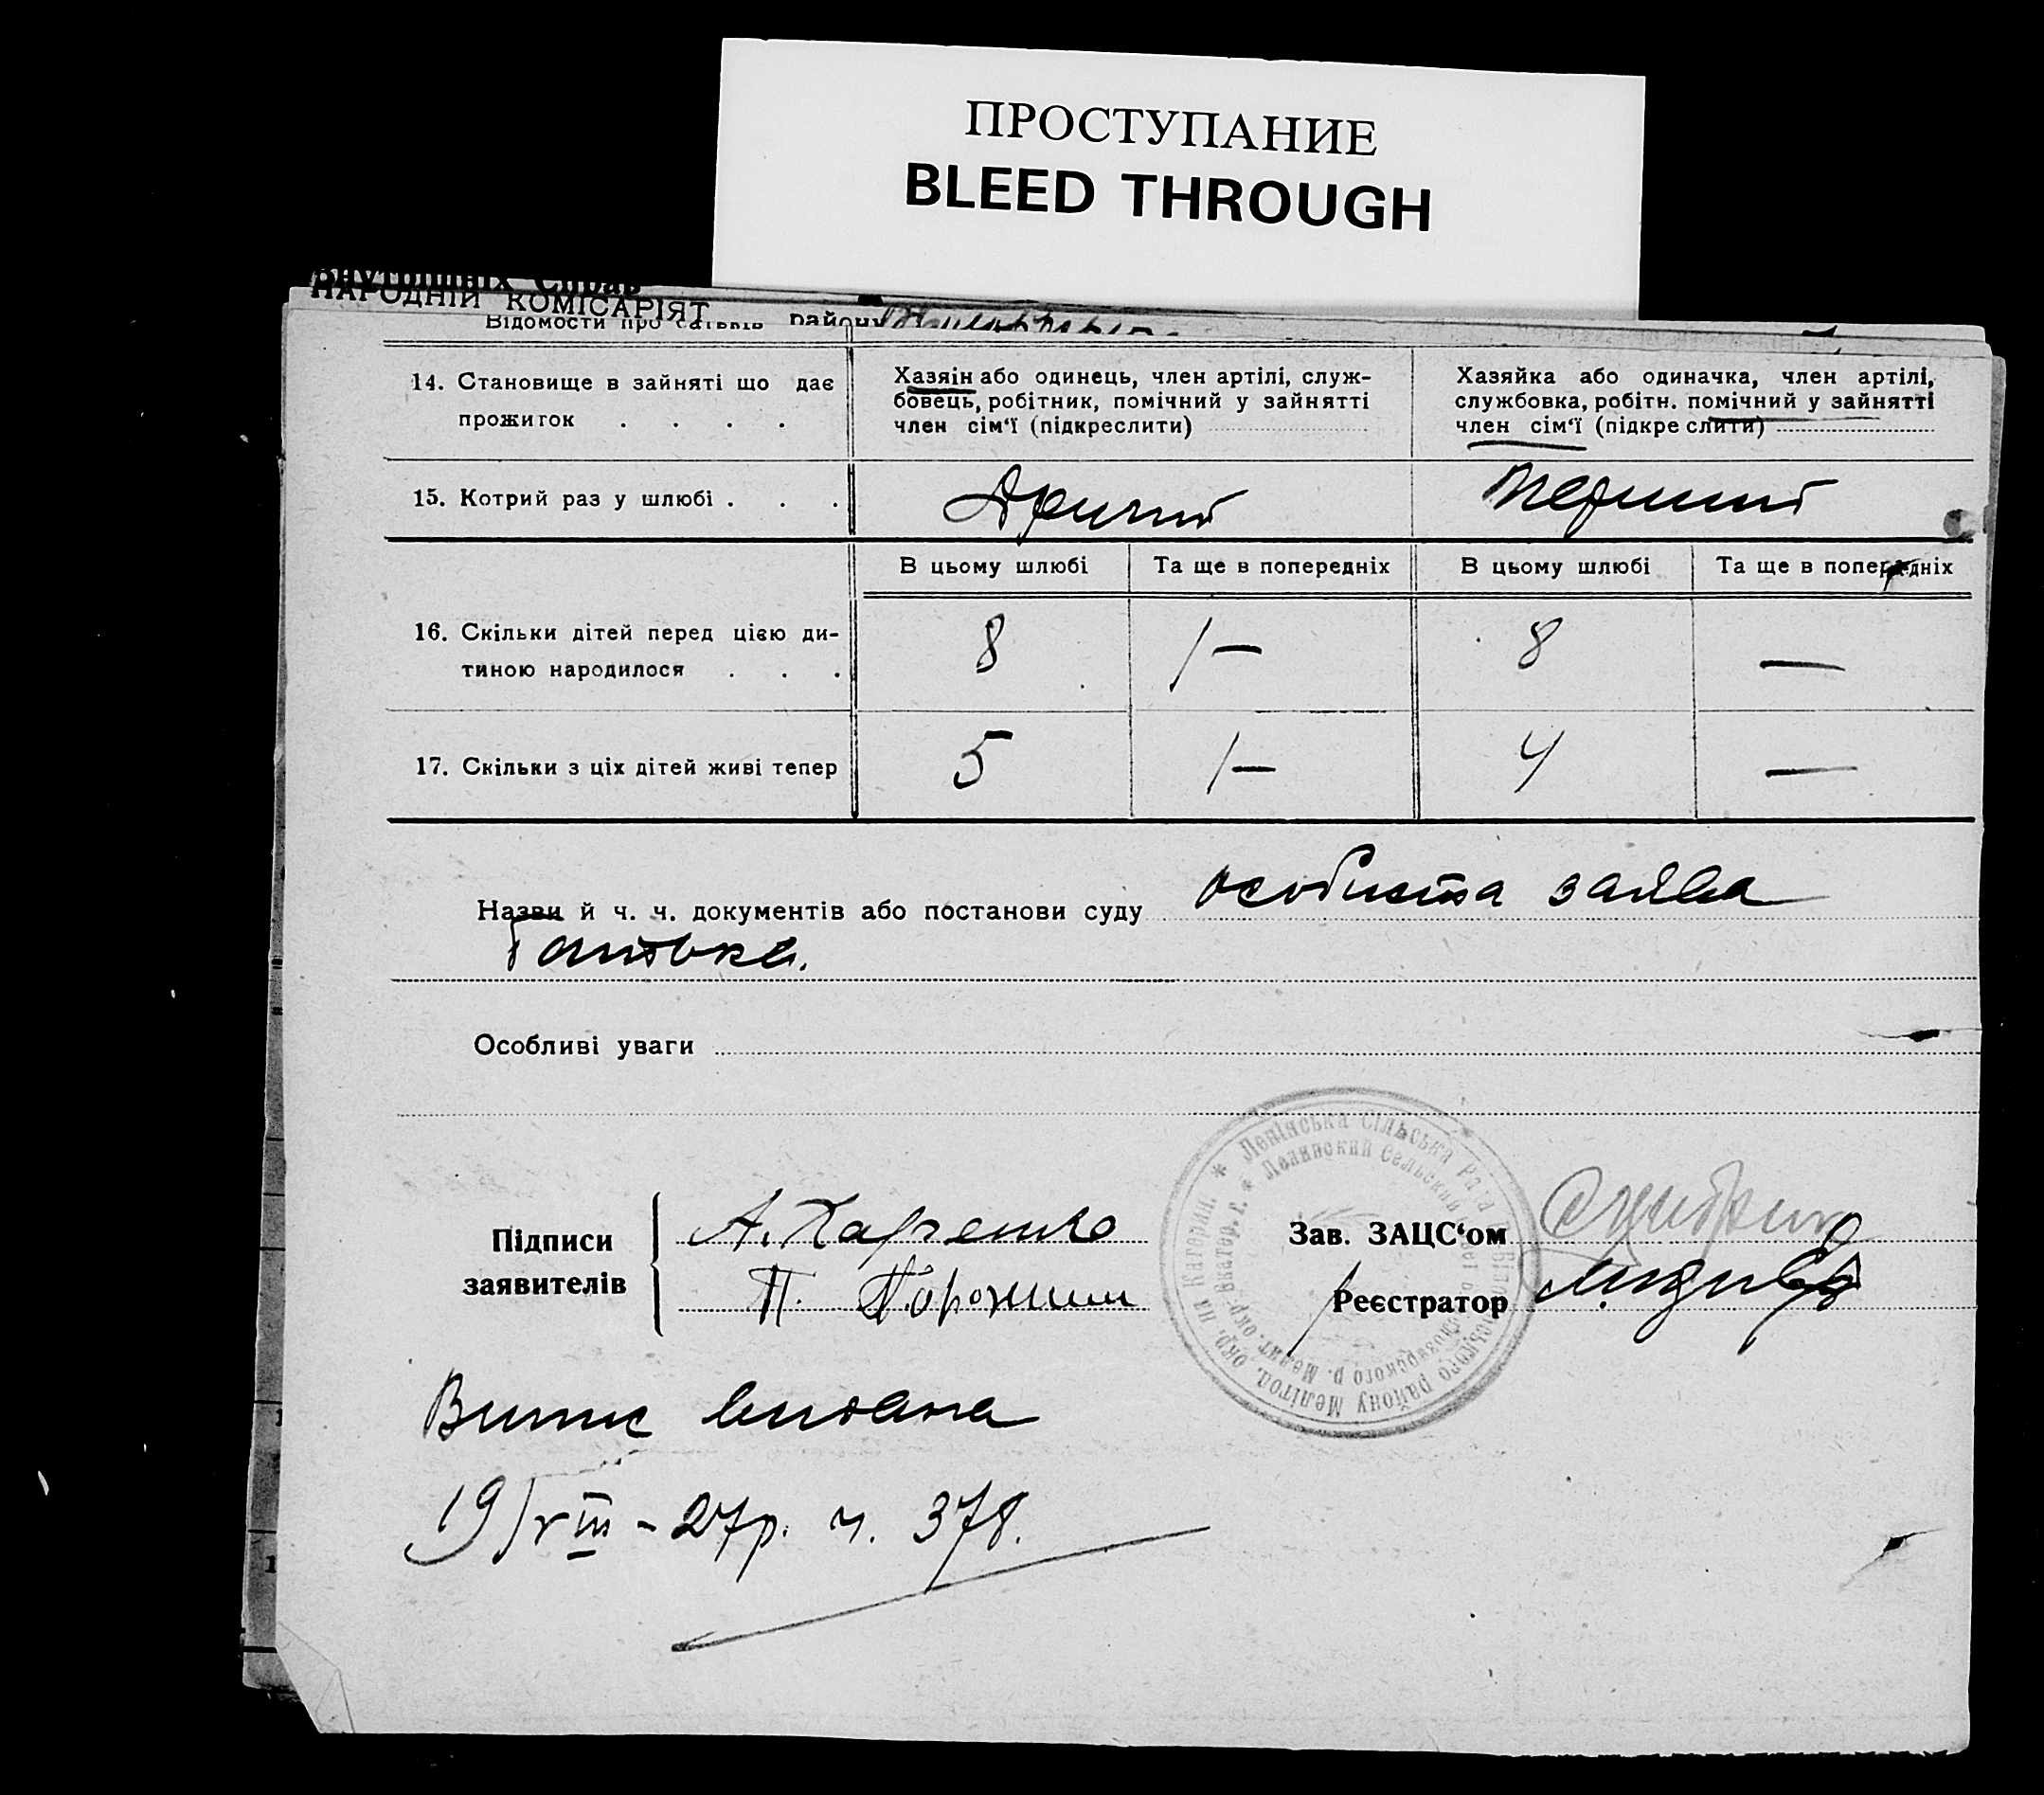 ПРОСТУПАНИЕ
BLEED THROUGH
Внутрішніх Справ
НАРОДНІЙ КОМІСАРІЯТ
Відомости про батьків району
14. Становище в зайняті що дає
прожиток . . . .
Хазяін або одинець, член артілі, служ-
бовець, робітник, помічний у зайнятті
член сім‘ї (підкреслити)
Хазяйка або одиначка, член артілі,
службовка, робітн. помічний у зайнятті
член сім‘ї (підкреслити)
15. Котрий раз у шлюбі . . .
Другий
Перший
В цьому шлюбі
Та ще в попередніх
В цьому шлюбі
Та ще в попередніх
16. Скільки дітей перед цією ди-
тиною народилося . . .
8
1 —
8
—
17. Скільки з ціх дітей живі тепер
5
1 —
4
—
Назви й ч. ч. документів або постанови суду особиста заява
батька.
Особливі уваги
Підписи
заявителів
А. Харченко
П.
Зав. ЗАЦС‘ом
Реєстратор
* Ленінська Сільська Рада Білозірського району Мелітоп. окр. на Катерин.
* Ленинский Сельский Совет Белозерского р. Мелит. окр. Екатер. г.
Випис видана
19/VIII - 27р. ч. 378.